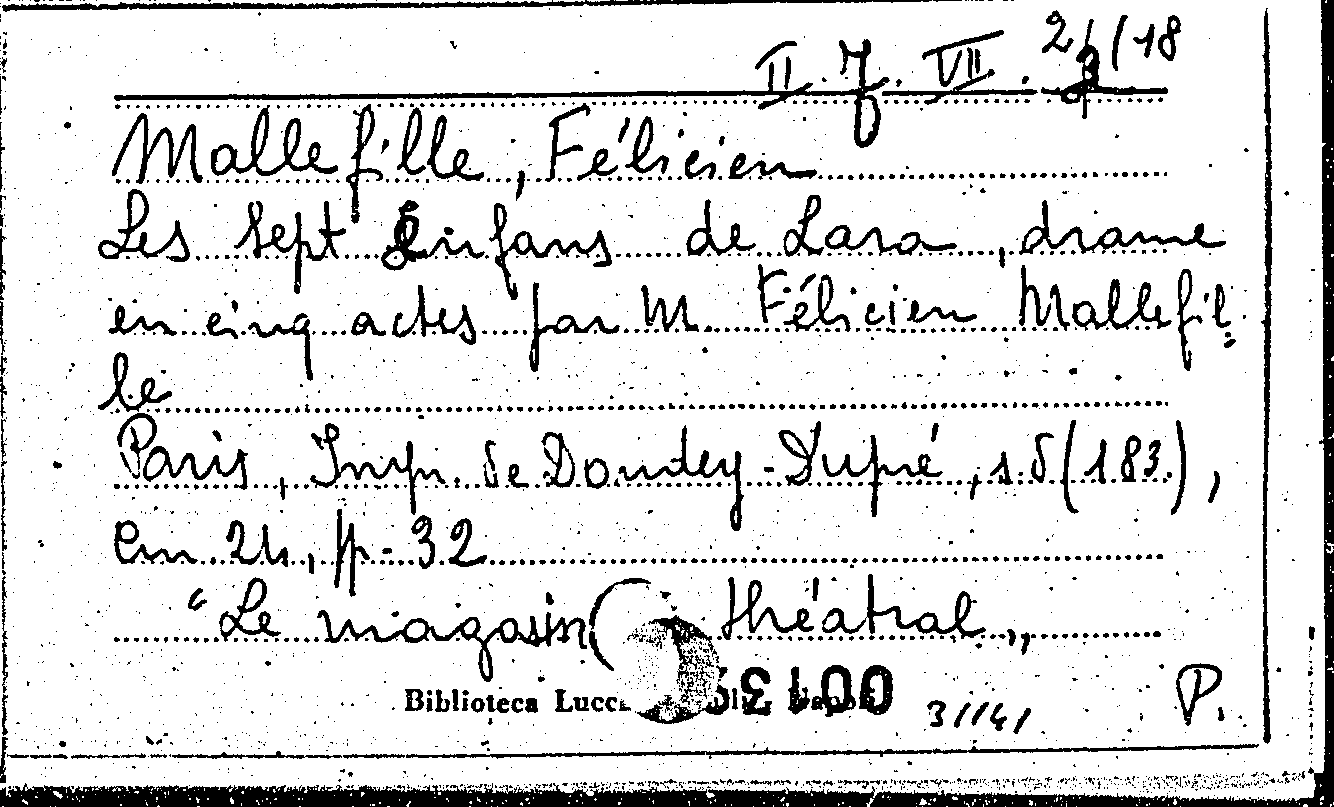 II. 7. VII. 2 /18
Mallefille, Félicien
Les Sept Enfans de Lara, drame
en cinq actes par M. Félicien Mallefil=
le
Paris, Imp. de Dondey-Dupré, s.d (183.),
Cm. 24, pp. 32
"Le magasin théatral„
Biblioteca Lucc
P.